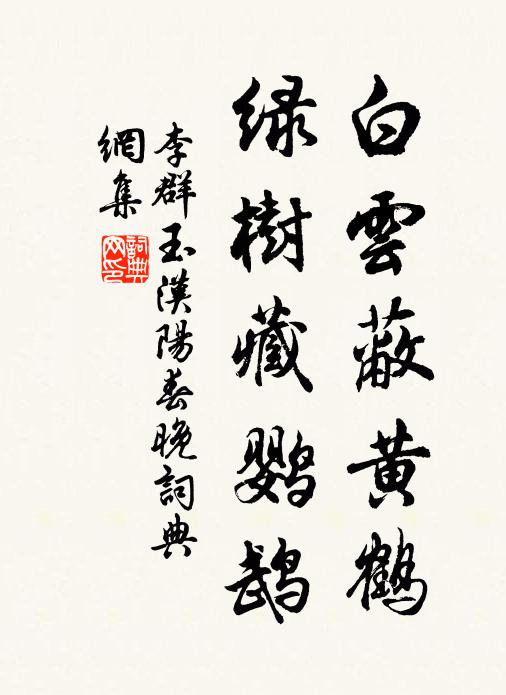 白雲蔽黄鶴
绿樹藏鹦鹉
李群玉漢陽春晚詞典
網集
詞典网印